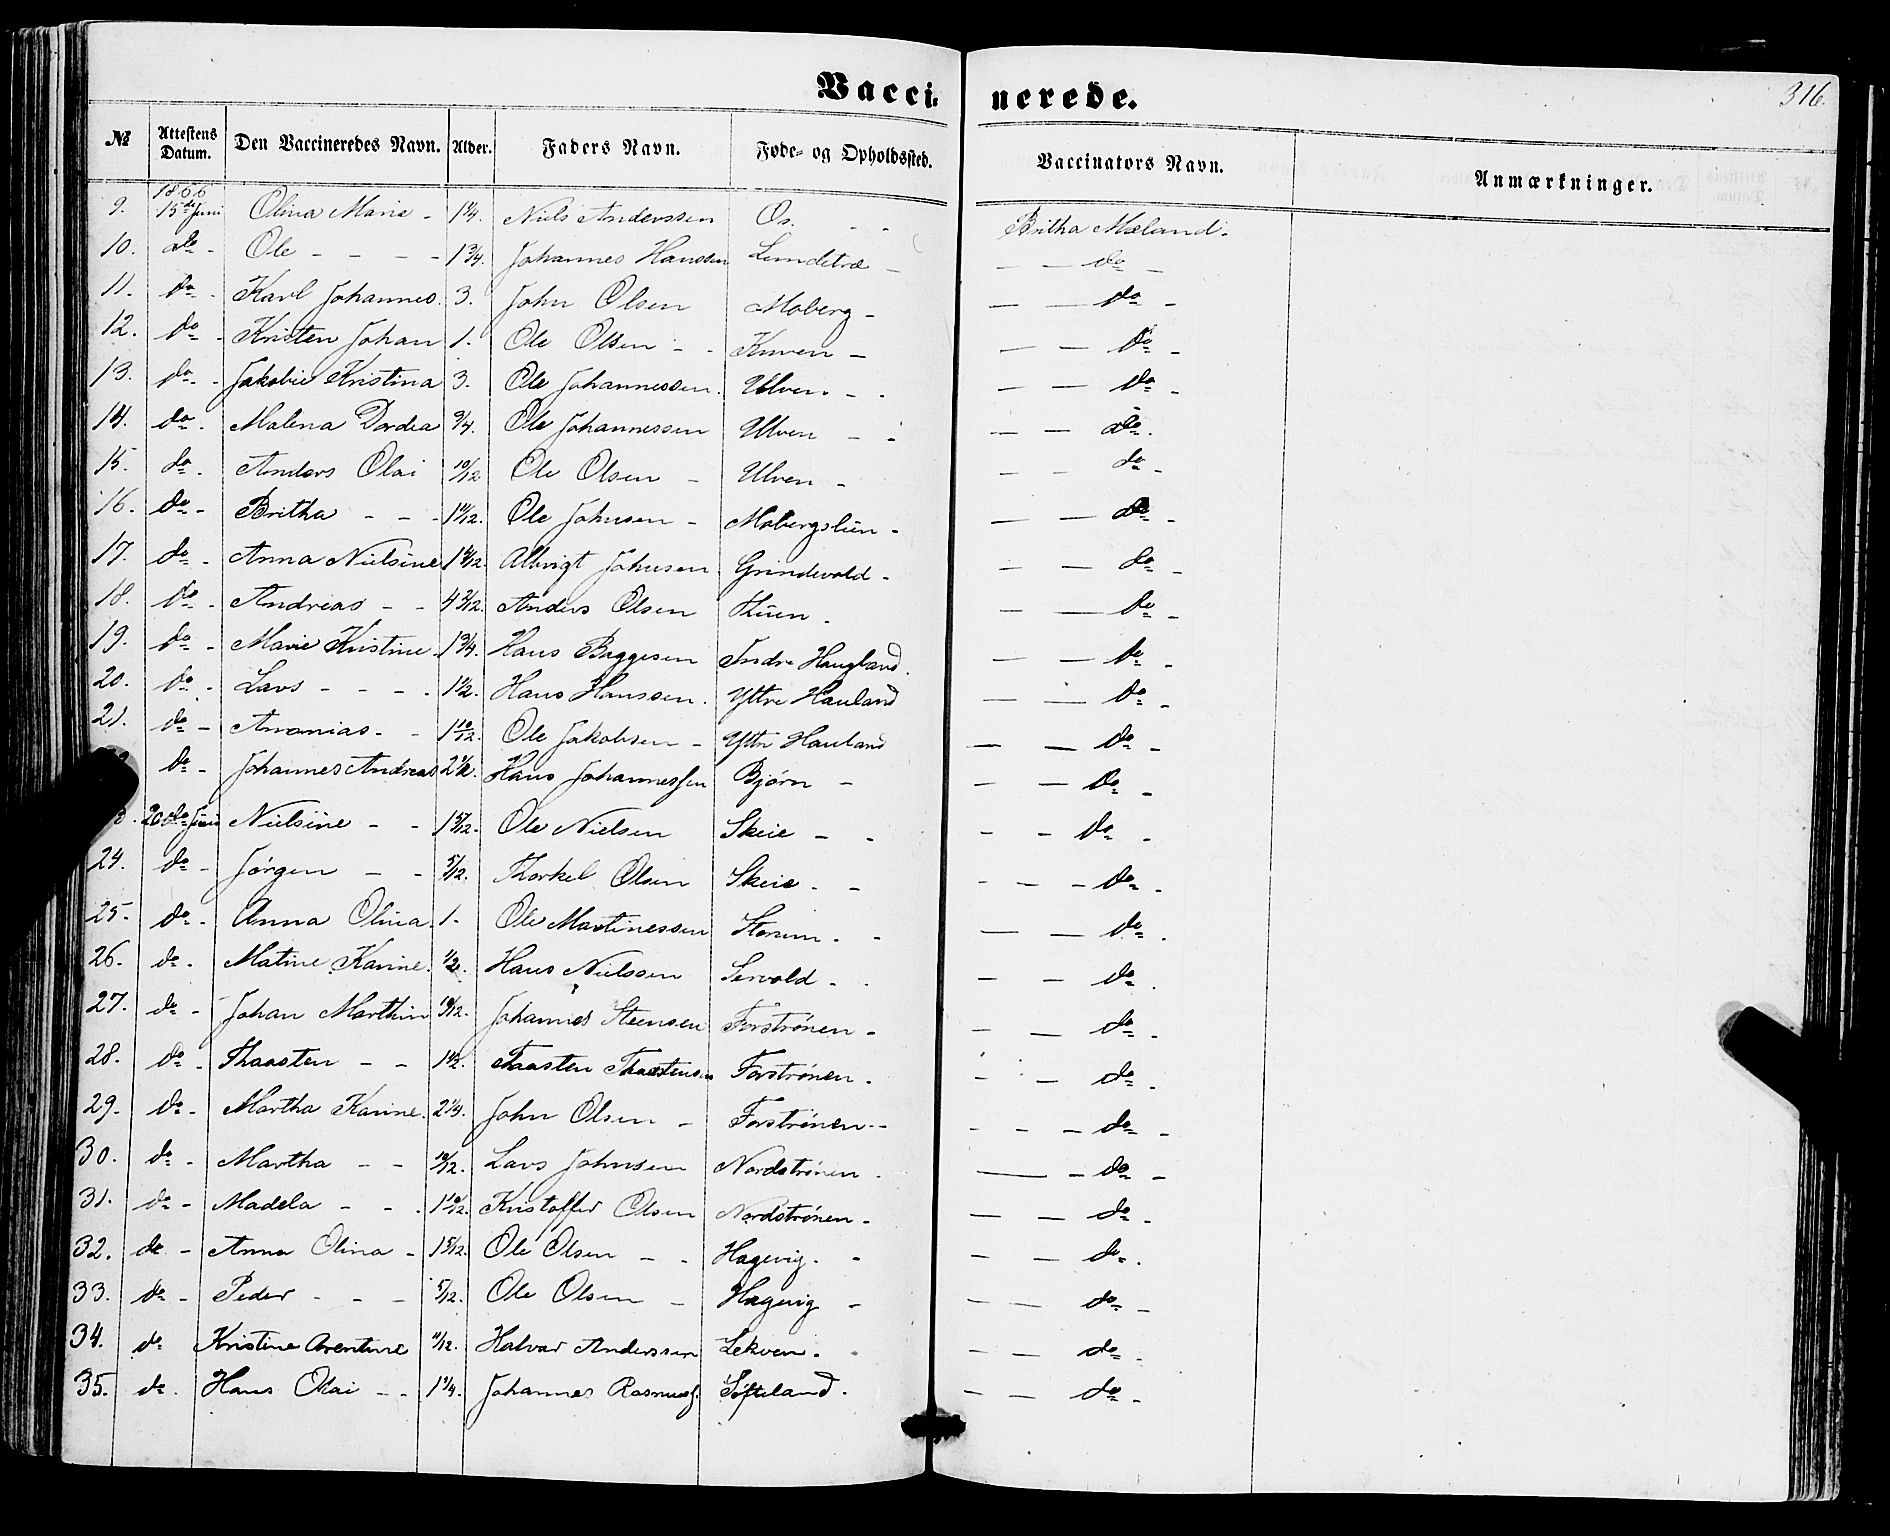 Vaccinerede.
316.
№ Attestens Datum. Den Vaccineredes Navn. Alder. Faders Navn. Føde- og Opholdssted. Vaccinators Navn. Anmærkninger.
1866
9. 15de Juni Olina Marie - 1 1/4. Niels Anderssen Os. - - Britha Mæland.
10. do - Ole - - - - 1 3/4. Johannes Hanssen Lundetræ - - - do -
11. do - Karl Johannes. 3. John Olsen Moberg - - - do -
12. do - Kristen Johan 1. Ole Olsen - - Kuven - - - do -
13. do - Jakobie Kristina 3. Ole Johannessen. Ulven. - - - - do -
14. do - Malena Dordea 3/4. Ole Johannessen Ulven - - - - do.
15. do - Anders Olai 10/12 Ole Olsen - Ulven - - - do -
16. do - Britha - - - Ole Johnsen - Mobergslien - - - do -
17. do - Anna Nielsine Albrigt Johnsen Grindevold - - - do -
18. do - Andreas - - 4 3/12. Anders Olsen - - - do -
19. do - Marie Kristine - 1 3/4. Hans Baggesen Indre Haugland. - - do -
20. do - Lars - - - - 1 1/2. Hans Hanssen. Yttre Hauland - - do -
21. do - Ananias - - 1 10/12. Ole Jakobsen - Yttre Hauland - - do -
do - Johannes Andreas 2 1/2. Hans Johannessen Bjørn - - - do -
3. 20de Juni Nielsine - - 1 5/12. Ole Nielsen Skeie - - - - do -
24. do - Jørgen - - 5/12. Thorkel Olsen Skeie - - - - - do -
25. do - Anna Olina. 1. Ole Martinessen - - - do -
26. do - Matine Karine. 1/2. Hans Nielssen - - - do.
27. do - Johan Marthin 10/12. Johannes Steensen Forstrønen - - - do -
28. do - Thaasten - - 1 1/2. Taasten Thaastensen Forstrønen - - - do -
29. do - Martha Karine. 2 1/4. John Olsen - Forstrønen - - - - do -
30. do - Martha - - 10/12. Lars Johnsen Nordstrønen. - - do -
31. do - Madela - - - 1 10/12. Kristoffer Olsen Nordstrønen - - - do -
32. do - Anna Olina - 1 5/12. Ole Olsen - - Hagevig. - - - do.
33. do - Peder - - - 5/12. Ole Olsen - Hagevig - - - do -
34. do Kristine Arentine 11/12. Halvar Anderssen Lekven. - - do -
35. do. Hans Olai - - 1 1/4. Johannes Rasmuss. Søfteland. - - do -